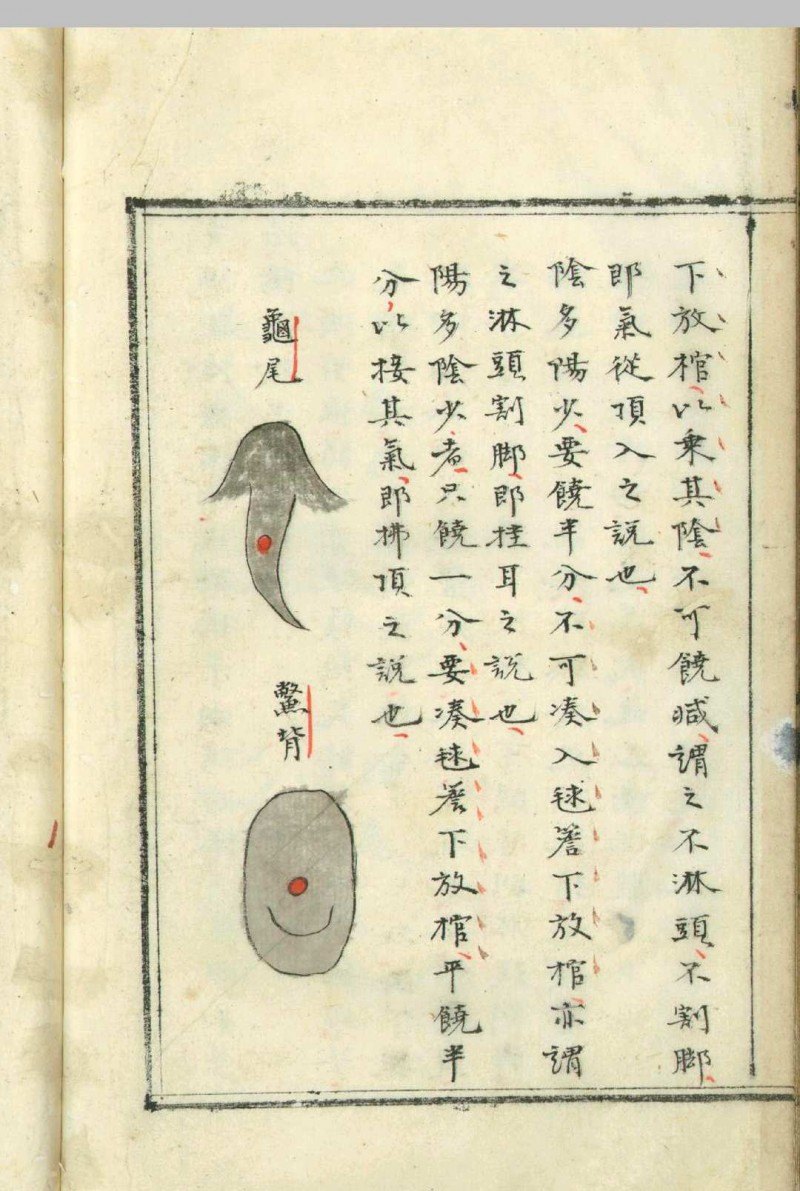 下放棺以乘其陰不可饒减謂之不淋頭不割脚
即氣從頂入之說也
陰多陽少要饒半分不可湊入毬簷下放棺亦謂
之淋頭割脚即挂耳之說也
陽多陰少者只饒一分要湊毬簷下放棺平饒半
分以接其氣即拂頂之說也
龜尾
鱉背